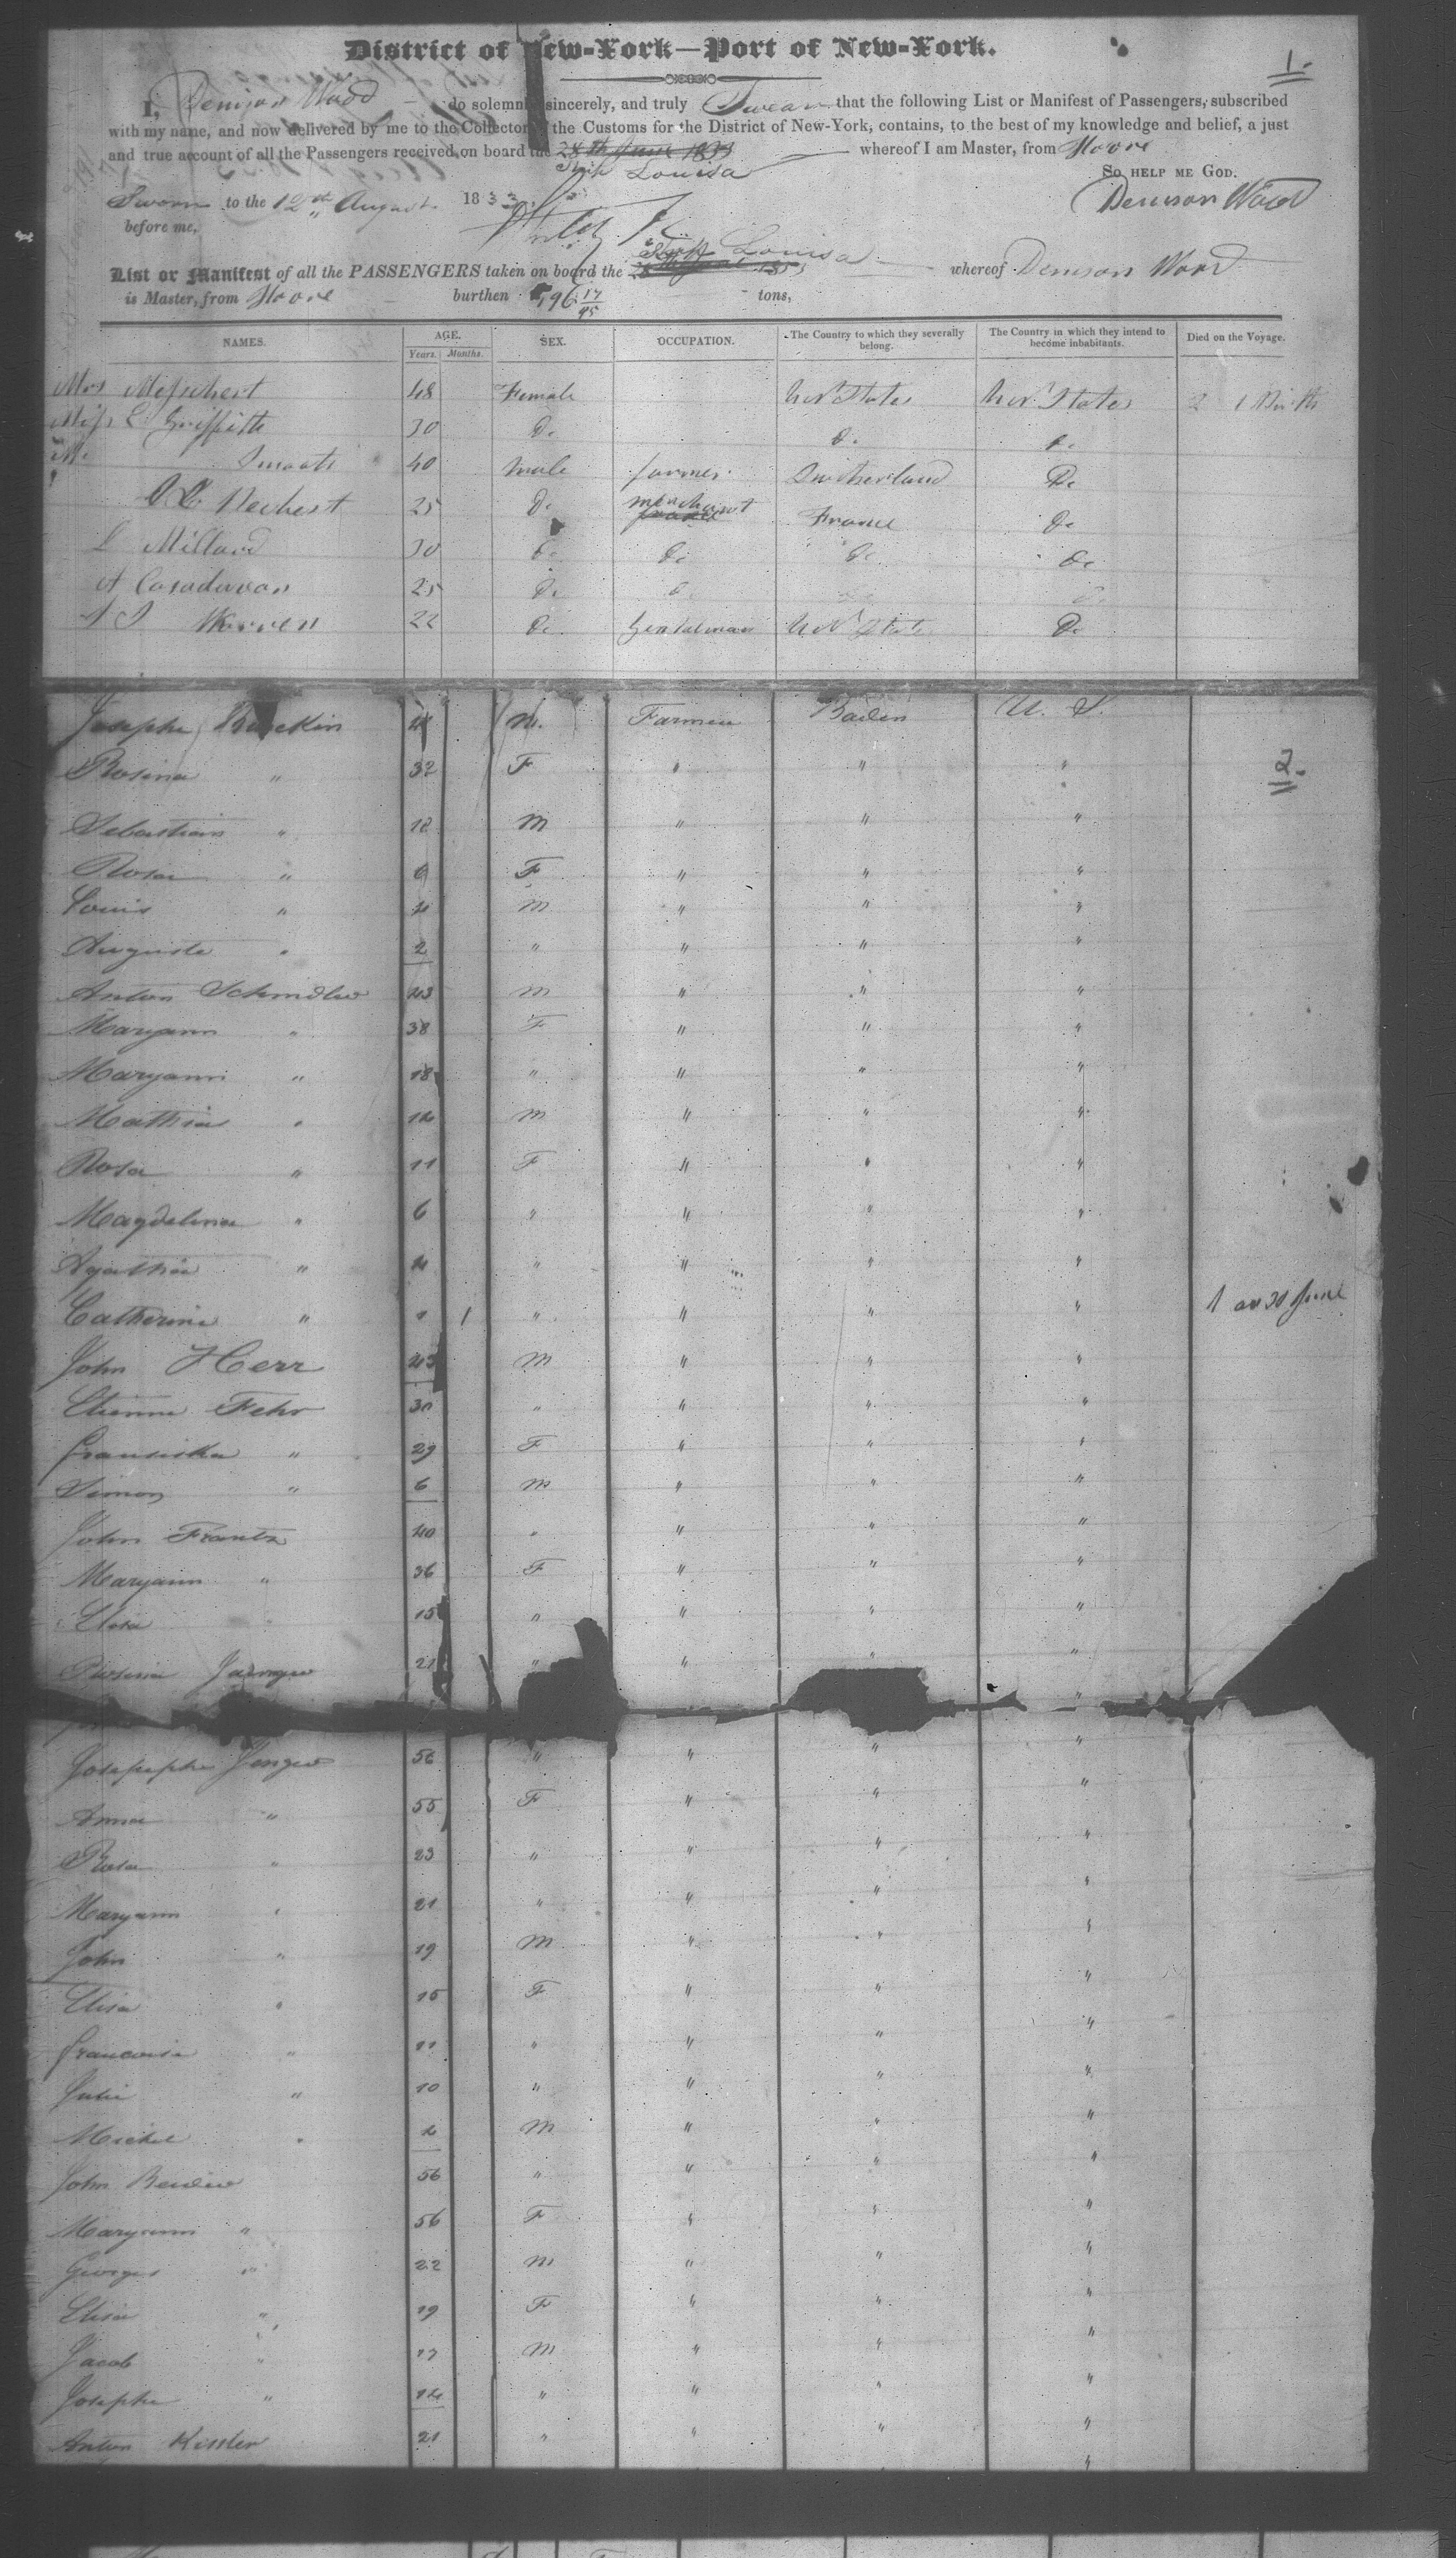 District of New-York—Port of New-York.
1.
I, Denison Wood do solemnly, sincerely, and truly Swear that the following List or Manifest of Passengers, subscribed
with my name, and now delivered by me to the Collector of the Customs for the District of New-York, contains, to the best of my knowledge and belief, a just
and true account of all the Passengers received on board the 28th June 1833 whereof I am Master, from Havre
Ship Louisa
So help me God.
Sworn to the 12th August 1833
before me,
Denison Wood
Ship Louisa
List or Manifest of all the PASSENGERS taken on board the whereof Denison Wood
is Master, from Havre burthen 196 17/95 tons,
NAMES. AGE. Years. Months. SEX. OCCUPATION. The Country to which they severally belong. The Country in which they intend to become inhabitants. Died on the Voyage.
Mrs 48 Female Un States Un States 2 1 Birth
Miss E Griffith 30 Do Do Do
Mr Smoots 40 male farmer Switherland Do
25 Do merchant France Do
L Millard 30 Do Do Do Do
A Casadavan 25 Do Do
22 Do Gentelman Un States Do
Josephe M. Farmer Baden U. S.
2.
Rosina " 32 F " " "
Sebastian " 12 M " " "
Rosa " 6 F " " "
Louis " 4 M " " "
Auguste " 2 " " " "
Anton Schmdler 43 M " " "
Maryann " 38 F " " "
Maryann " 18 " " " "
Mathias " 14 M " " "
Rosa " 11 F " " "
Magdelena " 6 " " " "
Agatha " 4 " " " "
Catherine " 1 " " " " 1 on 30 June
John Herr 43 M " " "
Etienne Fehr 30 " " " "
Fransiska " 29 F " " "
Simon " 6 M " " "
John Frantz 40 " " " "
Maryann " 36 F " " "
15 " " " "
Rosina 21 " " " "
"
Josepephe Jenger 56 " " " "
Anna " 55 F " " "
Rosa " 23 " " " "
Maryann " 21 " " " "
John " 19 M " " "
Elisa " 15 F " " "
Francoise " 11 " " " "
Julie " 10 " " " "
Michel " 4 M " " "
John Bender 56 " " " "
Maryann " 56 F " " "
Georges " 22 M " " "
Elisa " 19 F " " "
Jacob " 17 M " " "
Josephe " 14 " " " "
Anton Kissler 21 " " " "